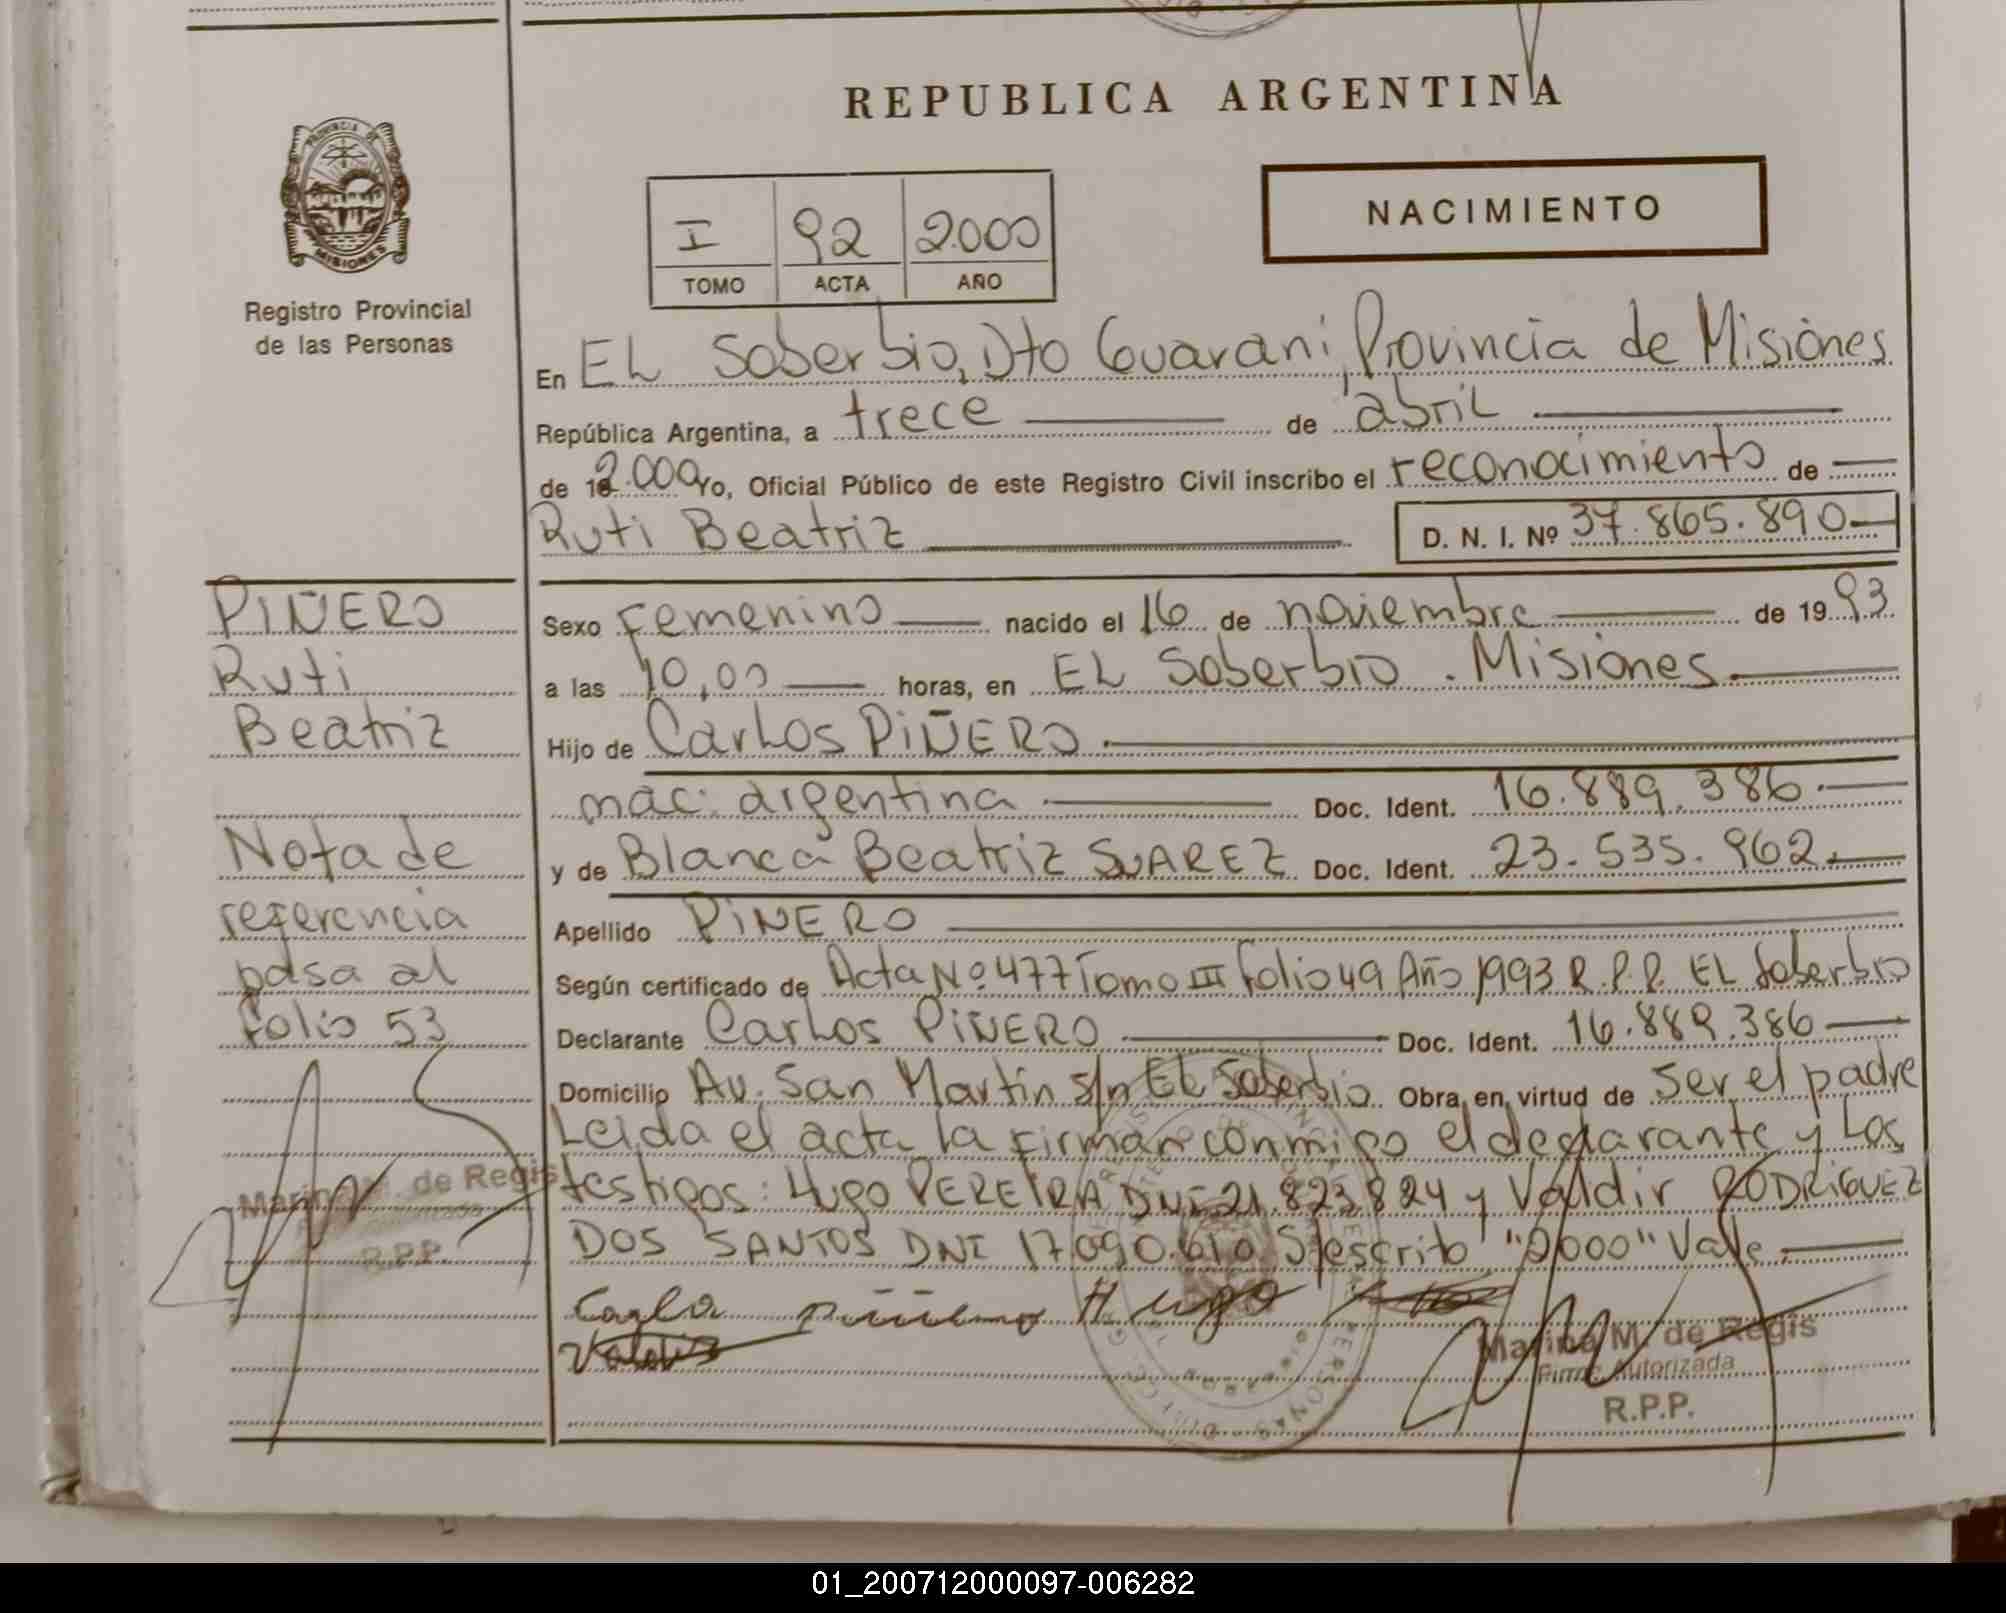 REPUBLICA ARGENTINA
PROVINCIA DE
MISIONES
Registro Provincial
de las Personas
I 92 2.000
TOMO ACTA AÑO
NACIMIENTO
En EL Soberbio, Dto Guaraní, Provincia de Misiones
República Argentina, a trece de abril
de 2.000 Yo, Oficial Público de este Registro Civil inscribo el reconocimiento de
Ruti Beatriz
D. N. I. Nº 37.865.890
PIÑERO
Ruti
Beatriz
Nota de
referencia
pasa al
folio 53
Marina M. de Regis
R.P.P.
Sexo Femenino nacido el 16 de noviembre de 19 93
a las 10,00 horas, en EL Soberbio . Misiones
Hijo de Carlos PIÑERO
nac: argentina Doc. Ident. 16.889.386
y de Blanca Beatriz SUAREZ Doc. Ident. 23.535.962
Apellido PIÑERO
Según certificado de Acta Nº 477 Tomo III folio 49 Año 1993 R.P.P. EL Soberbio
Declarante Carlos PIÑERO Doc. Ident. 16.889.386
Domicilio Av. San Martín s/n EL Soberbio Obra en virtud de ser el padre
Leida el acta la firman conmigo el declarante y Los
testigos: Hugo PEREIRA DNI 21.823.824 y Valdir RODRIGUEZ
DOS SANTOS DNI 17.090.610 S/escrito "2000" Vale.
Hugo
Marina M. de Regis
Firma Autorizada
R.P.P.
01_200712000097-006282